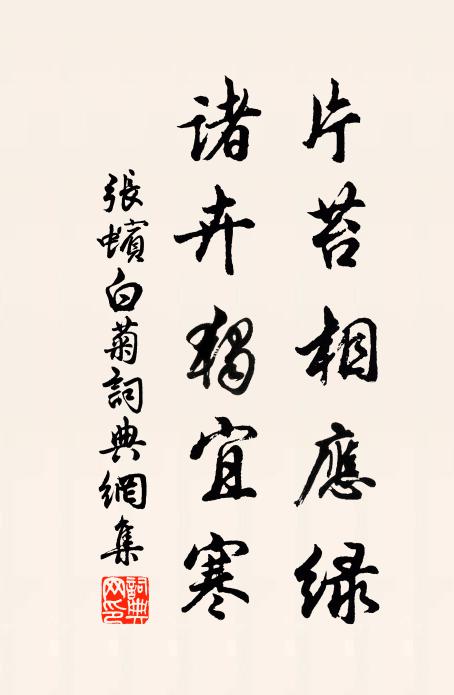 片苔相應緑
諸卉獨宜寒
張蠙白菊詞典網集
詞典網印